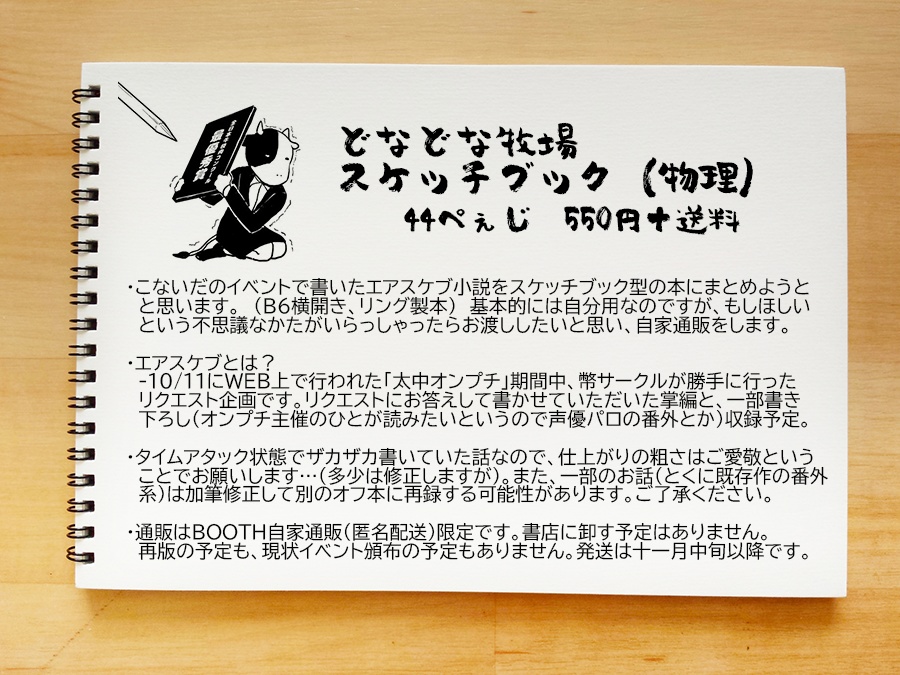 どなどな牧場
スケッチブック（物理）
44ぺぇじ 550円+送料
・こないだのイベントで書いたエアスケブ小説をスケッチブック型の本にまとめようと
と思います。（B6横開き、リング製本） 基本的には自分用なのですが、もしほしい
という不思議なかたがいらっしゃったらお渡ししたいと思い、自家通販をします。
・エアスケブとは？
-10/11にWEB上で行われた「太中オンプチ」期間中、幣サークルが勝手に行った
リクエスト企画です。リクエストにお答えして書かせていただいた掌編と、一部書き
下ろし（オンプチ主催のひとが読みたいというので声優パロの番外とか）収録予定。
・タイムアタック状態でザカザカ書いていた話なので、仕上がりの粗さはご愛敬という
ことでお願いします…（多少は修正しますが）。また、一部のお話（とくに既存作の番外
系）は加筆修正して別のオフ本に再録する可能性があります。ご了承ください。
・通販はBOOTH自家通販（匿名配送）限定です。書店に卸す予定はありません。
再版の予定も、現状イベント頒布の予定もありません。発送は十一月中旬以降です。